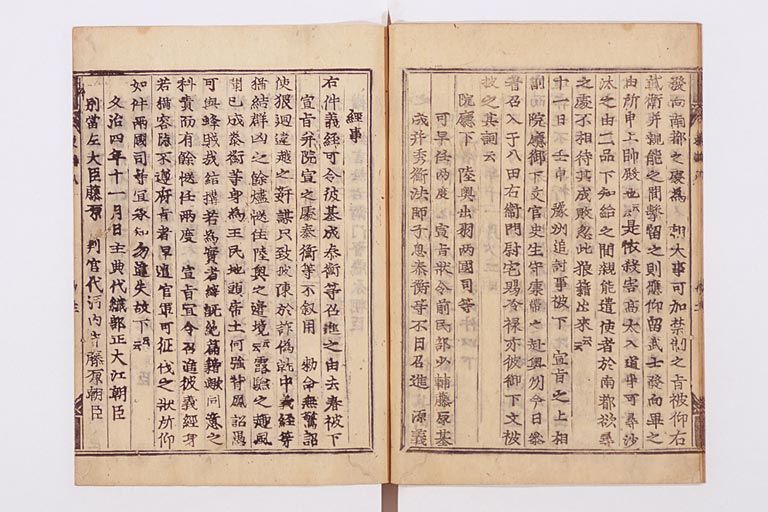 發向南都之處為 朝大事可加禁制之旨被仰右
武衛并親能之間擊留之則應仰留武士發向畢之
由所申上帥殿也云云是依殺害高太入道事可尋沙
汰之由二品下知給之間親能遣使者於南都欲尋
之處不相待其成敗忽此狼藉出來云云
十二日 壬申 豫州追討事被下 宣旨之上相
副而院廳御下文官史生守康帶之赴奥州今日參
著召入于八田右衛門尉宅賜冷禄亦彼御下文被
披之其詞云
院廳下 陸奥出羽兩國司等
可早任兩度 宣旨狀令前民部少輔藤原基
成并秀衡法師子息泰衡等不日召進 源義
經事
右件義經可令彼基成泰衡等召進之由去春被下
宣旨并院宣之處泰衡等不叙用 勅命無驚詔
使狼迴違越之奸謀只致披陳於詐偽就中義經等
猶結群凶之餘燼慥住陸奥之邊境云云露顯之趣風
聞已成泰衡等身為王民地頭帝土何強背鳳詔愚
可與蜂賊哉結搆若為實者縡旣絶篇籍歟同意之
科責而有餘慥任兩度 宣旨宜令召進彼義經身
若猶容隱不遵府旨者早遣官軍可征伐之狀所仰
如件兩國司等宜承知勿違失故下云云
文治四年十一月日主典代織部正大江朝臣
別當左大臣藤原 判官代河内守藤原朝臣